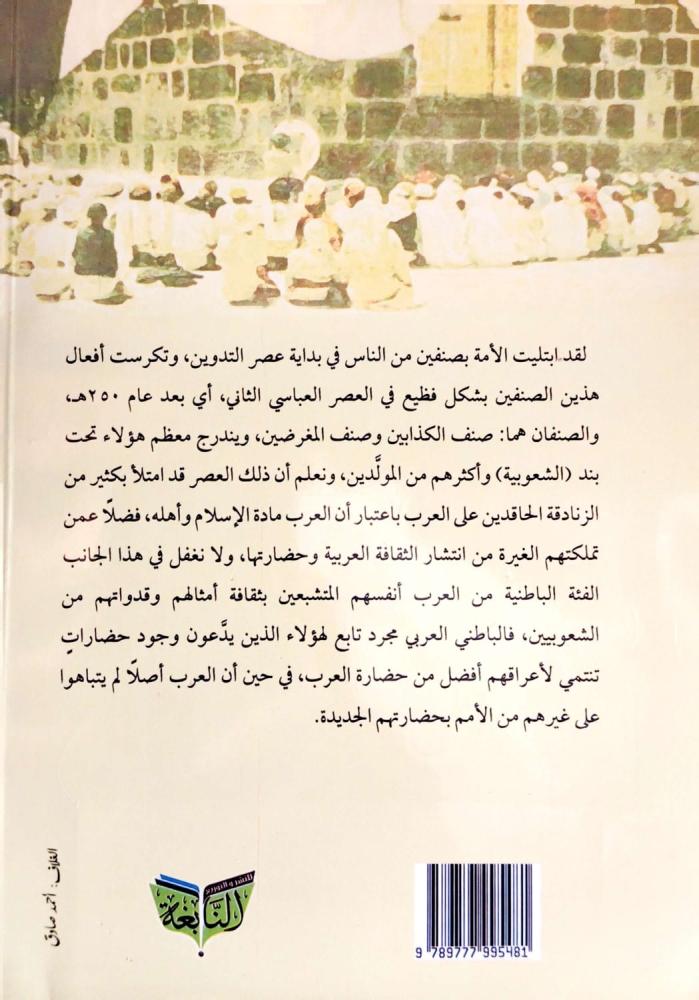 لقد ابتليت الأمة بصنفين من الناس في بداية عصر التدوين، وتكرست أفعال
هذين الصنفين بشكل فظيع في العصر العباسي الثاني، أي بعد عام ٢٥٠هـ،
والصنفان هما: صنف الكذابين وصنف المغرضين، ويندرج معظم هؤلاء تحت
بند (الشعوبية) وأكثرهم من المولَّدين، ونعلم أن ذلك العصر قد امتلأ بكثير من
الزنادقة الحاقدين على العرب باعتبار أن العرب مادة الإسلام وأهله، فضلًا عمن
تملكتهم الغيرة من انتشار الثقافة العربية وحضارتها، ولا نغفل في هذا الجانب
الفئة الباطنية من العرب أنفسهم المتشبعين بثقافة أمثالهم وقدواتهم من
الشعوبيين، فالباطني العربي مجرد تابع لهؤلاء الذين يدَّعون وجود حضاراتٍ
تنتمي لأعراقهم أفضل من حضارة العرب، في حين أن العرب أصلًا لم يتباهوا
على غيرهم من الأمم بحضارتهم الجديدة.
الغلاف: أحمد صادق
للنشر والتوزيع
النَّابغة
9 789777 995481